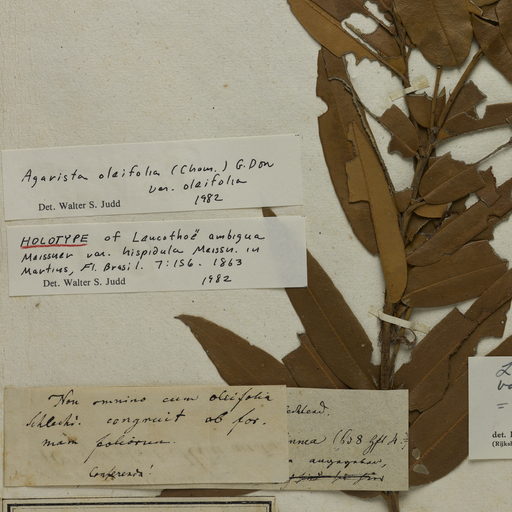 Agarista oleifolia (Cham.) G. Don
var. oleifolia
Det. Walter S. Judd 1982
HOLOTYPE of Leucothoë ambigua
Meissner var. hispidula Meissn. in
Martius, Fl. Brasil. 7:156. 1863
Det. Walter S. Judd 1982
Non omnino cum oleifolia
Schlecht. congruit ob for-
mam foliorum.
Conferenda!
L
va
=
det.
(Rijksh